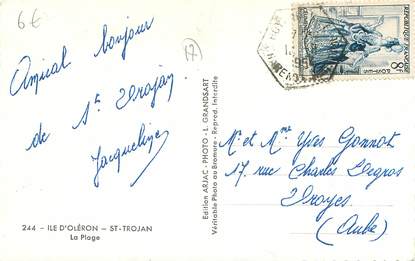 6€
17
Amical bonjour
de St Trojan
Jacqueline
244 - ILE D'OLÉRON - ST-TROJAN
La Plage
Edition ARJAC - PHOTO - L. GRANDSART
Véritable Photo au Bromure - Reprod. Interdite
REPUBLIQUE FRANÇAISE
8F
Mr et Mme Yves Gonnot
17, rue Charles Legros
Troyes
(Aube)